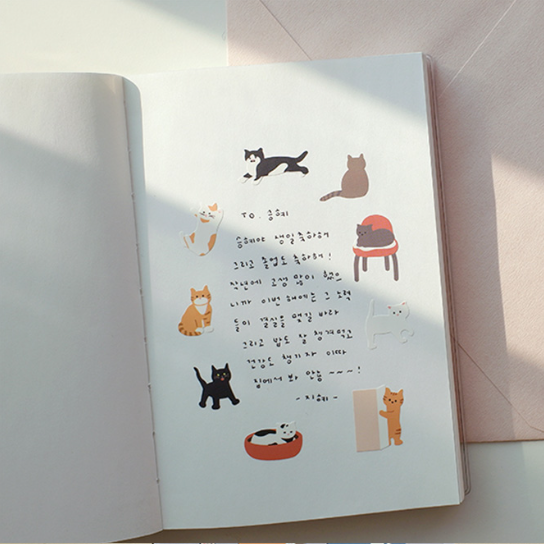 TO. 승혜
승혜야 생일 축하해
그리고 졸업도 축하해!
작년에 고생 많이 했으
니까 이번 해에는 그 노력
들이 결실을 맺길 바라
그리고 밥도 잘 챙겨먹고
건강도 챙기자 이따
집에서 봐 안뇽 ~~~!
- 지혜 -